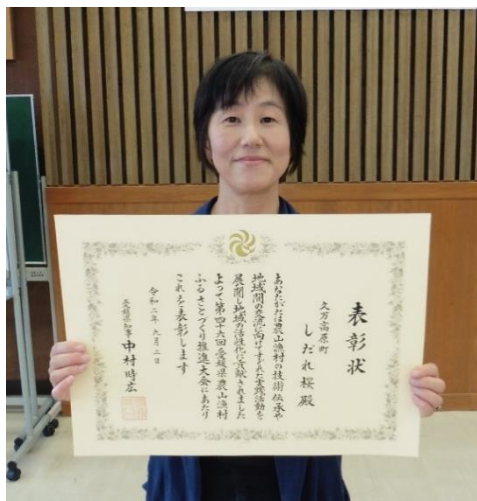 表彰状
久万高原町
しだれ桜殿
あなたがたは農山漁村の技術伝承や
地域間の交流に向けてすぐれた実践活動を
展開し地域の活性化に貢献されました
よって第四十六回愛媛県農山漁村
ふるさとづくり推進大会にあたり
これを表彰します
令和二年九月二日
愛媛県知事 中村時広